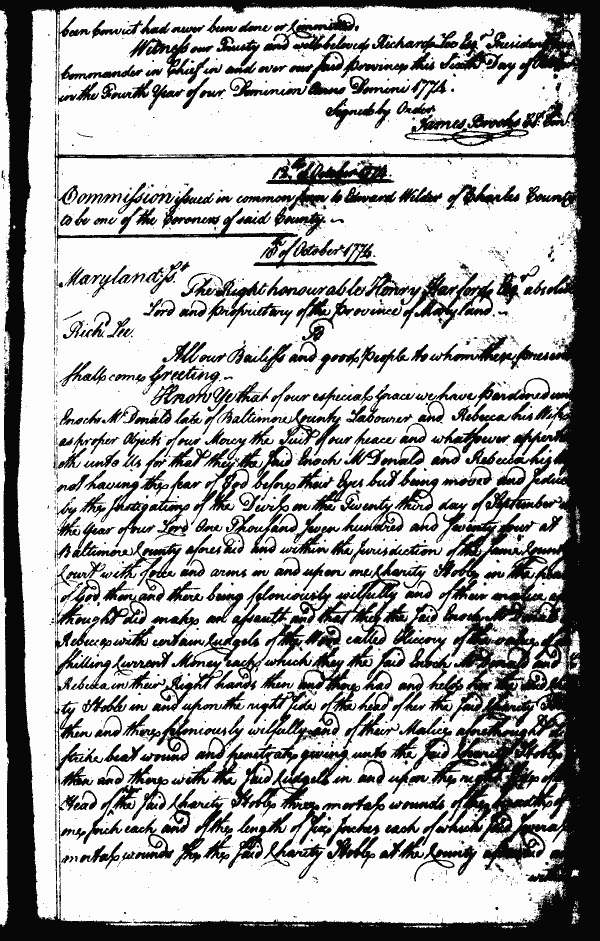 been Convict had never been done or Committed.
Witness our Trusty and well beloved Richard Lee Esqr. President
Commander in Chief in and over our said Province this Sixth Day of
in the Fourth Year of our Dominion Anno Domini 1774.
Signed by Order
James Brooks
12th of October 1774
Commission issued in common form to Edward Wilder of Charles County
to be one of the Coroners of said County.
18th of October 1774
Maryland Sst
The Right honourable Henry Harford Esqr absolute
Lord and Proprietary of the Province of Maryland
Richd. Lee. To
All our Bailiffs and good People to whom these Presents
shall come Greeting.
Know Ye that of our especial Grace we have Pardoned
Enoch McDonald late of Baltimore County Labourer and Rebecca his Wife
as proper Objects of our Mercy the Suit of our peace and whatsoever
oth unto Us for that they the said Enoch McDonald and Rebecca his
not having the fear of God before their Eyes but being moved and
by the Instigations of the Devil on the Twenty third day of September
the Year of our Lord One Thousand Seven hundred and Seventy four at
Baltimore County aforesaid and within the Jurisdiction of the same County
Court with force and arms in and upon one Charity Stobbe in the peace
of God then and there being feloniously wilfully and of their malice
thought did make an assault and that they the said Enoch McDonald
Rebecca with certain Cudgels of the Wood called Hiccory of the value of
shilling Current Money each which they the said Enoch McDonald and
Rebecca in their Right hands then and there had and held
ty Stobbe in and upon the right side of the head of her the said Charity
then and there feloniously wilfully and of their Malice aforethought
strike beat wound and penetrate giving unto the said Charity Stobbe
then and there with the said Cudgels in and upon the right side of
Head of the said Charity Stobbe three mortal wounds of the breadth of
one Inch each and of the length of Six Inches each of which said
mortal wounds she the said Charity Stobbe at the County aforesaid